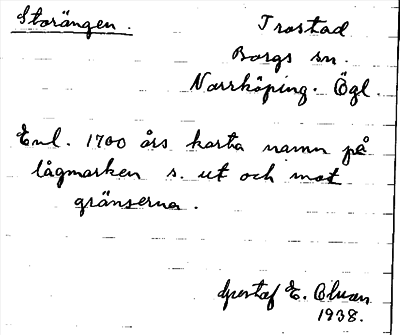 Storängen.
Trostad
Borgs sn.
Norrköping. Ögl.
Enl. 1700 års karta namn på
lågmarken s. ut och mot
gränserna.
Gustaf E. Olson
1938.